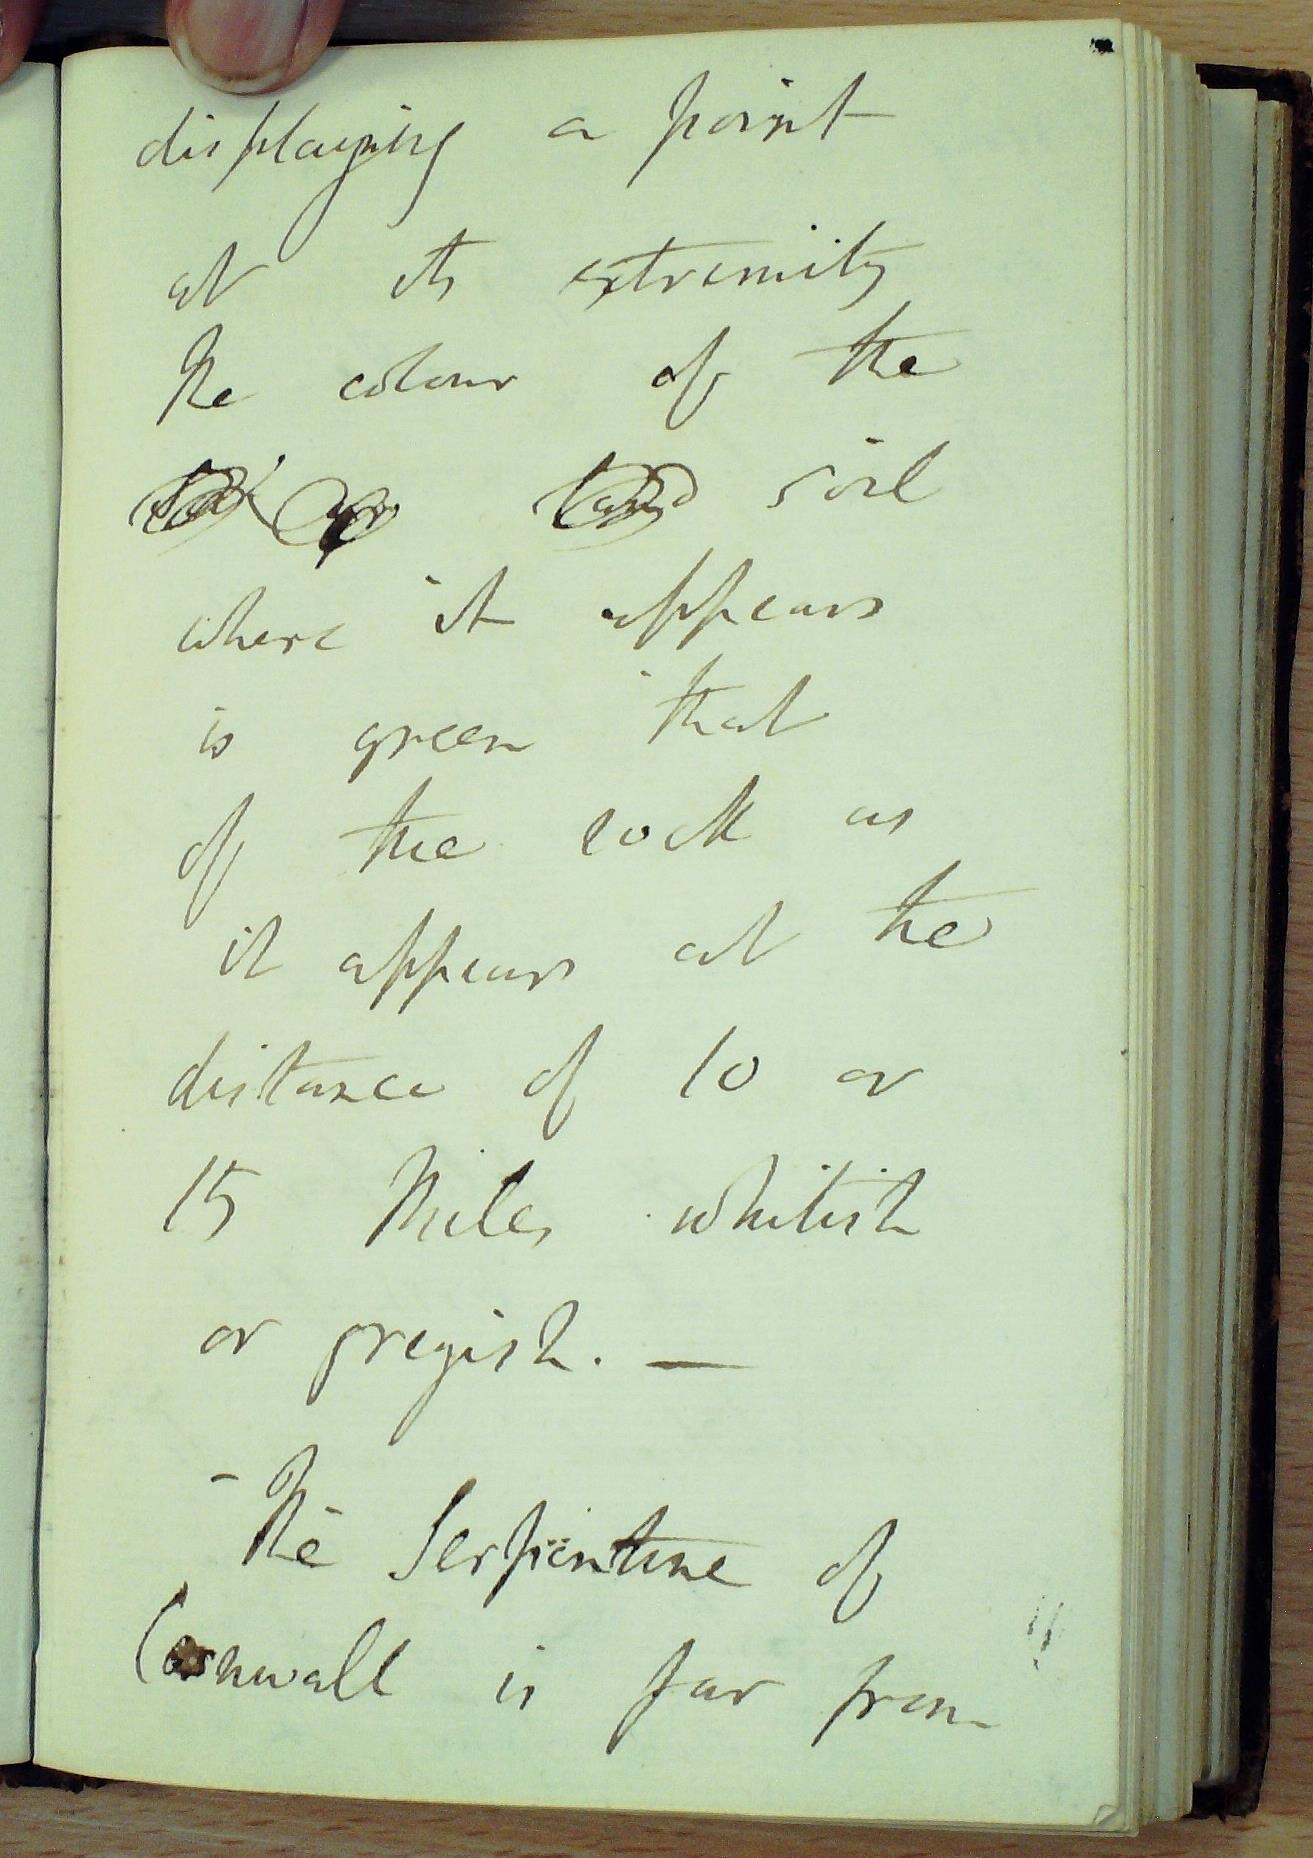 displaying a point
at its extremity
The colour of the
soil
where it appears
is green that
of the rock as
it appears at the
distance of 10 or
15 Miles whitish
or greyish. —
- The Serpentine of
Cornwall is far from